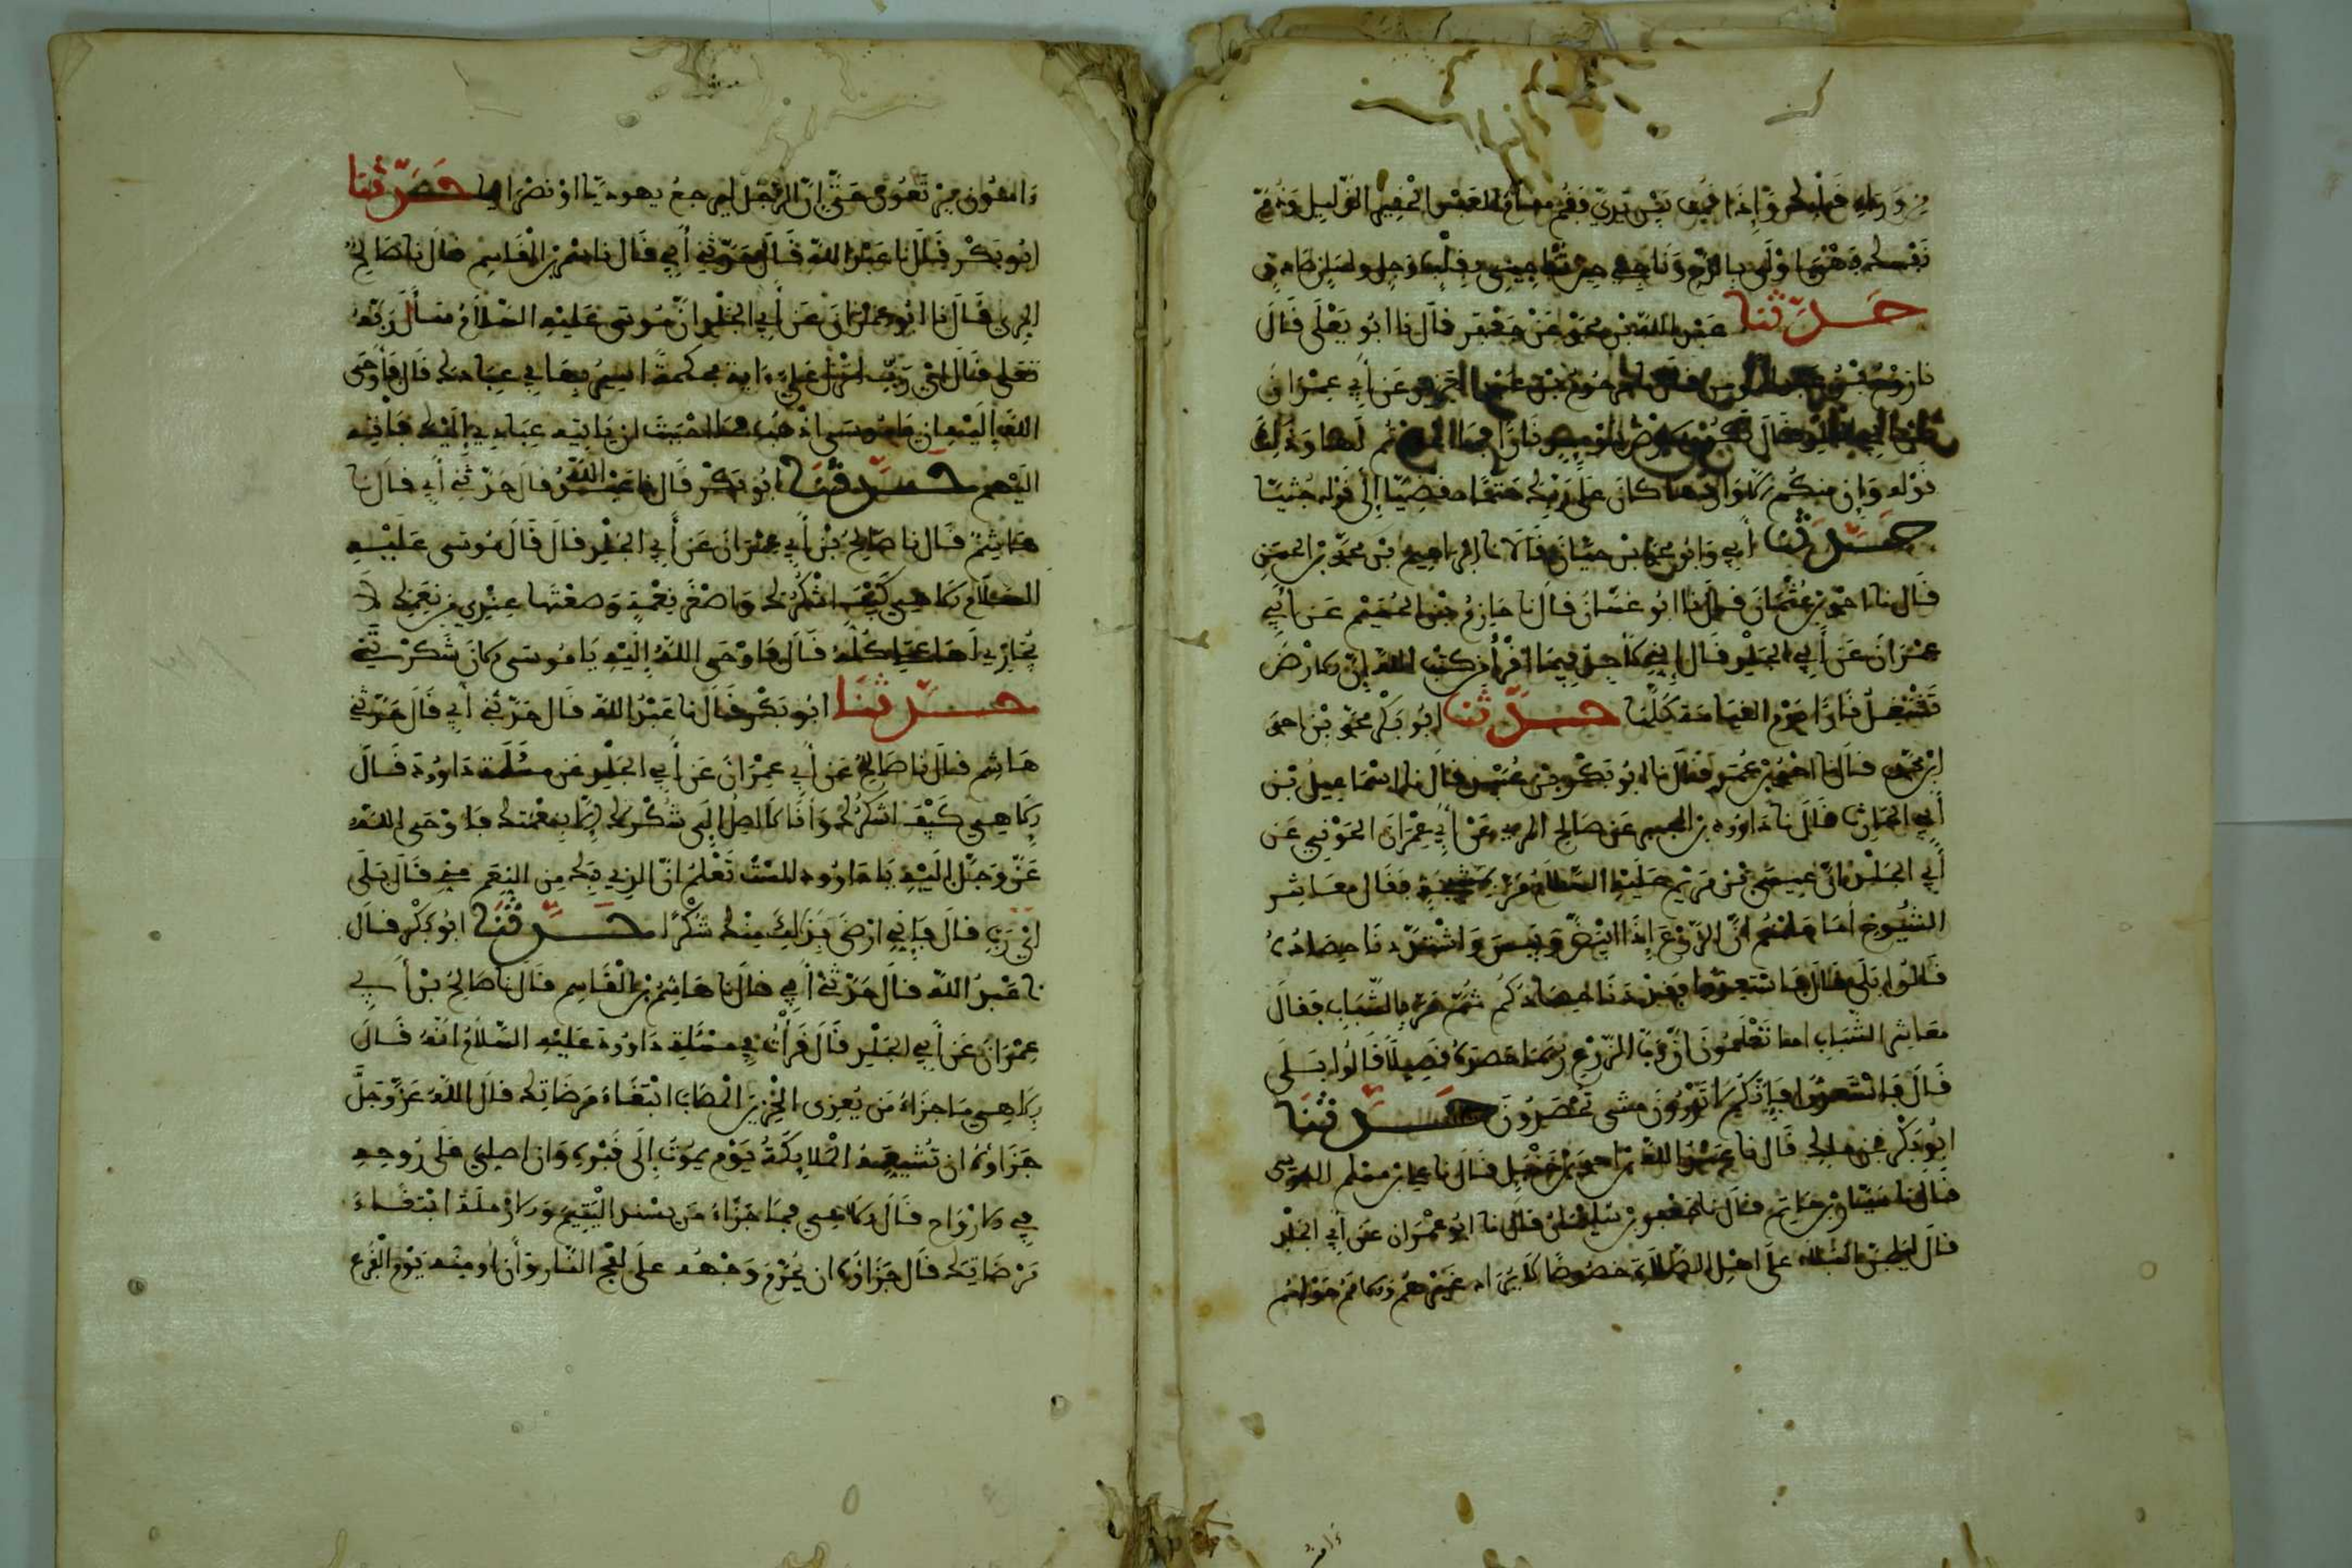 من ورائك وإذا قيل بين يدي فقم مقام العبد الحقير الذليل وذم
نفسك فهي أولى بالذم وناجني حين تناجيني بقلب وجل ولسان صادق
حدثنا عبد الله بن محمد بن جعفر قال نا أبو يعلى قال
نا روح بن عن أبي عمران
لها وذلك
قوله وإن منكم إلا واردها كان على ربك حتما مقضيا إلى قوله جثيا
حدثنا أبي وأبو محمد بن حيان قالا نا إبراهيم بن محمد بن الحسن
قال نا أحمد بن عثمان قال نا أبو غسان قال نا خازم بن الحسين عن أبي
عمران عن أبي الجلد قال إني لأجد فيما أقرأ من كتب الله إن الأرض
تشتعل نارا يوم القيامة كلها حدثنا أبو بكر محمد بن أحمد
ابن محمد قال نا أحمد بن عمر قال نا أبو بكر بن عبيد قال نا إسماعيل بن
أبي الحارث قال نا داود بن المحبر عن صالح المري عن أبي عمران الجوني عن
أبي الجلد أن عيسى بن مريم عليه السلام مر بمشيخة فقال معاشر
الشيوخ أما علمتم أن الزرع إذا ابيض ويبس واشتد دنا حصاده
قالوا بلى قال فاستعدوا فقد دنا حصادكم ثم مر بالشباب فقال
معاشر الشباب أما تعلمون أن رب الزرع ربما حصده قصيلا قالوا بلى
قال فاستعدوا فإنكم لا تدرون متى تحصدون حدثنا
أبو بكر بن مالك قال نا عبد الله بن أحمد بن حنبل قال نا علي بن مسلم الطوسي
قال نا سيار بن حاتم قال نا جعفر بن سليمان قال نا أبو عمران عن أبي الجلد
قال ليحلن البلاء على أهل الصلاة خصوصا لا يراد غيرهم والأمم حولهم
آمنون يرتعون حتى إن الرجل ليرجع يهوديا أو نصرانيا حدثنا
أبو بكر قال نا عبد الله قال حدثني أبي قال نا هاشم بن القاسم قال نا صالح
المري قال نا أبو عمران عن أبي الجلد أن موسى عليه السلام سأل ربه
تعلى فقال أي رب أنزل علي آية محكمة أسير بها في عبادك قال فأوحى
الله إليه أن يا موسى اذهب فما أحببت أن يأتيه عبادي إليك فأته
إليهم حدثنا أبو بكر قال نا عبد الله قال حدثني أبي قال نا
هاشم قال نا صالح بن أبي عمران عن أبي الجلد قال قال موسى عليه
السلام إلاهي كيف أشكرك وأصغر نعمة وضعتها عندي من نعمك لا
يجازي بها عملي كله قال فأوحى الله إليه يا موسى الآن شكرتني
حدثنا أبو بكر قال نا عبد الله قال حدثني أبي قال حدثني
هاشم قال نا صالح عن أبي عمران عن أبي الجلد عن مسئلة داود قال
إلاهي كيف أشكرك وأنا لا أصل إلى شكرك إلا بنعمتك فأوحى الله
عز وجل إليه يا داود ألست تعلم أن الذي بك من النعم مني قال بلى
أي رب قال فإني أرضى بذلك منك شكرا حدثنا أبو بكر قال
نا عبد الله قال حدثني أبي قال نا هاشم بن القاسم قال نا صالح بن أبي
عمران عن أبي الجلد قال قرأت في مسئلة داود عليه السلام أنه قال
إلاهي ما جزاء من يعزي الحزين المصاب ابتغاء مرضاتك قال الله عز وجل
جزاؤه أن تشيعه الملائكة يوم يموت إلى قبره وأن أصلي على روحه
في الأرواح قال إلاهي فما جزاء من يسند اليتيم والأرملة ابتغاء
مرضاتك قال جزاؤه أن يحرم وجهه على لفح النار وأن أومنه يوم الفزع